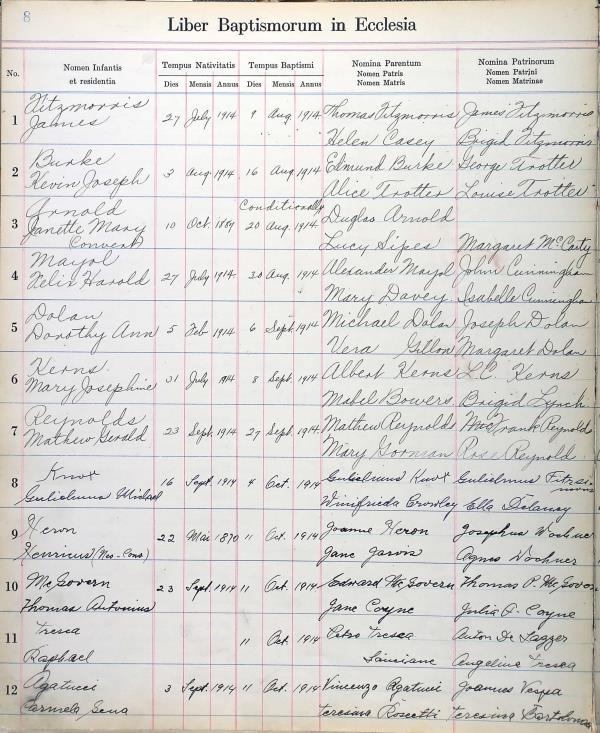 8
Liber Baptismorum in Ecclesia
No. Nomen Infantis et residentia Tempus Nativitatis Dies Mensis Annus Tempus Baptismi Dies Mensis Annus Nomina Parentum Nomen Patris Nomen Matris Nomina Patrinorum Nomen Patrini Nomen Matrinae
1 Fitzmorris 27 July 1914 9 Aug. 1914 Thomas Fitzmorris James Fitzmorris
James Helen Casey Brigid Fitzmorris
2 Burke 3 Aug 1914 16 Aug 1914 Edmund Burke George Trotter
Kevin Joseph Alice Trotter Louise Trotter
Conditionally
3 Arnold 10 Oct. 1889 20 Aug. 1914 Duglas Arnold
Janette Mary
Convert Lucy Sipes Margaret McCarty
4 Mayol 27 July 1914 30 Aug. 1914 Alexander Mayol John Cunningham
Felix Harold Mary Davey Isabelle Cunningham
5 Dolan 5 Feb 1914 6 Sept. 1914 Michael Dolan Joseph Dolan
Dorothy Ann Vera Gillon Margaret Dolan
6 Kerns. 31 July 1914 8 Sept. 1914 Albert Kerns L.C. Kerns
Mary Josephine Mabel Bowers Brigid Lynch
7 Reynolds 23 Sept. 1914 27 Sept. 1914 Mathew Reynolds Frank Reynolds
Mathew Gerald Mary Gorman Rose Reynolds
8 Knox 16 Sept. 1914 4 Oct. 1914 Gulielmus Knox Gulielmus Fitzsimons
Gulielmus Michael Winifrieda Crowley Ella Delaney
9 Heron 22 Mai 1870 11 Oct. 1914 Joannes Heron Josephus Wochner
Henricus (Neo-Conv) Jane Jarvis Agnes Wochner
10 McGovern 23 Sept. 1914 11 Oct. 1914 Edward McGovern Thomas P. McGovern
Thomas Antonius Jane Coyne Julia A. Coyne
11 Tresca 11 Oct. 1914 Petro Tresca Anton De
Raphael Angelina Tresca
12 Agatucci 3 Sept. 1914 11 Oct. 1914 Vincenzo Agatucci Joannes Vespa
Carmela Gena Teresina Roscetti Teresina